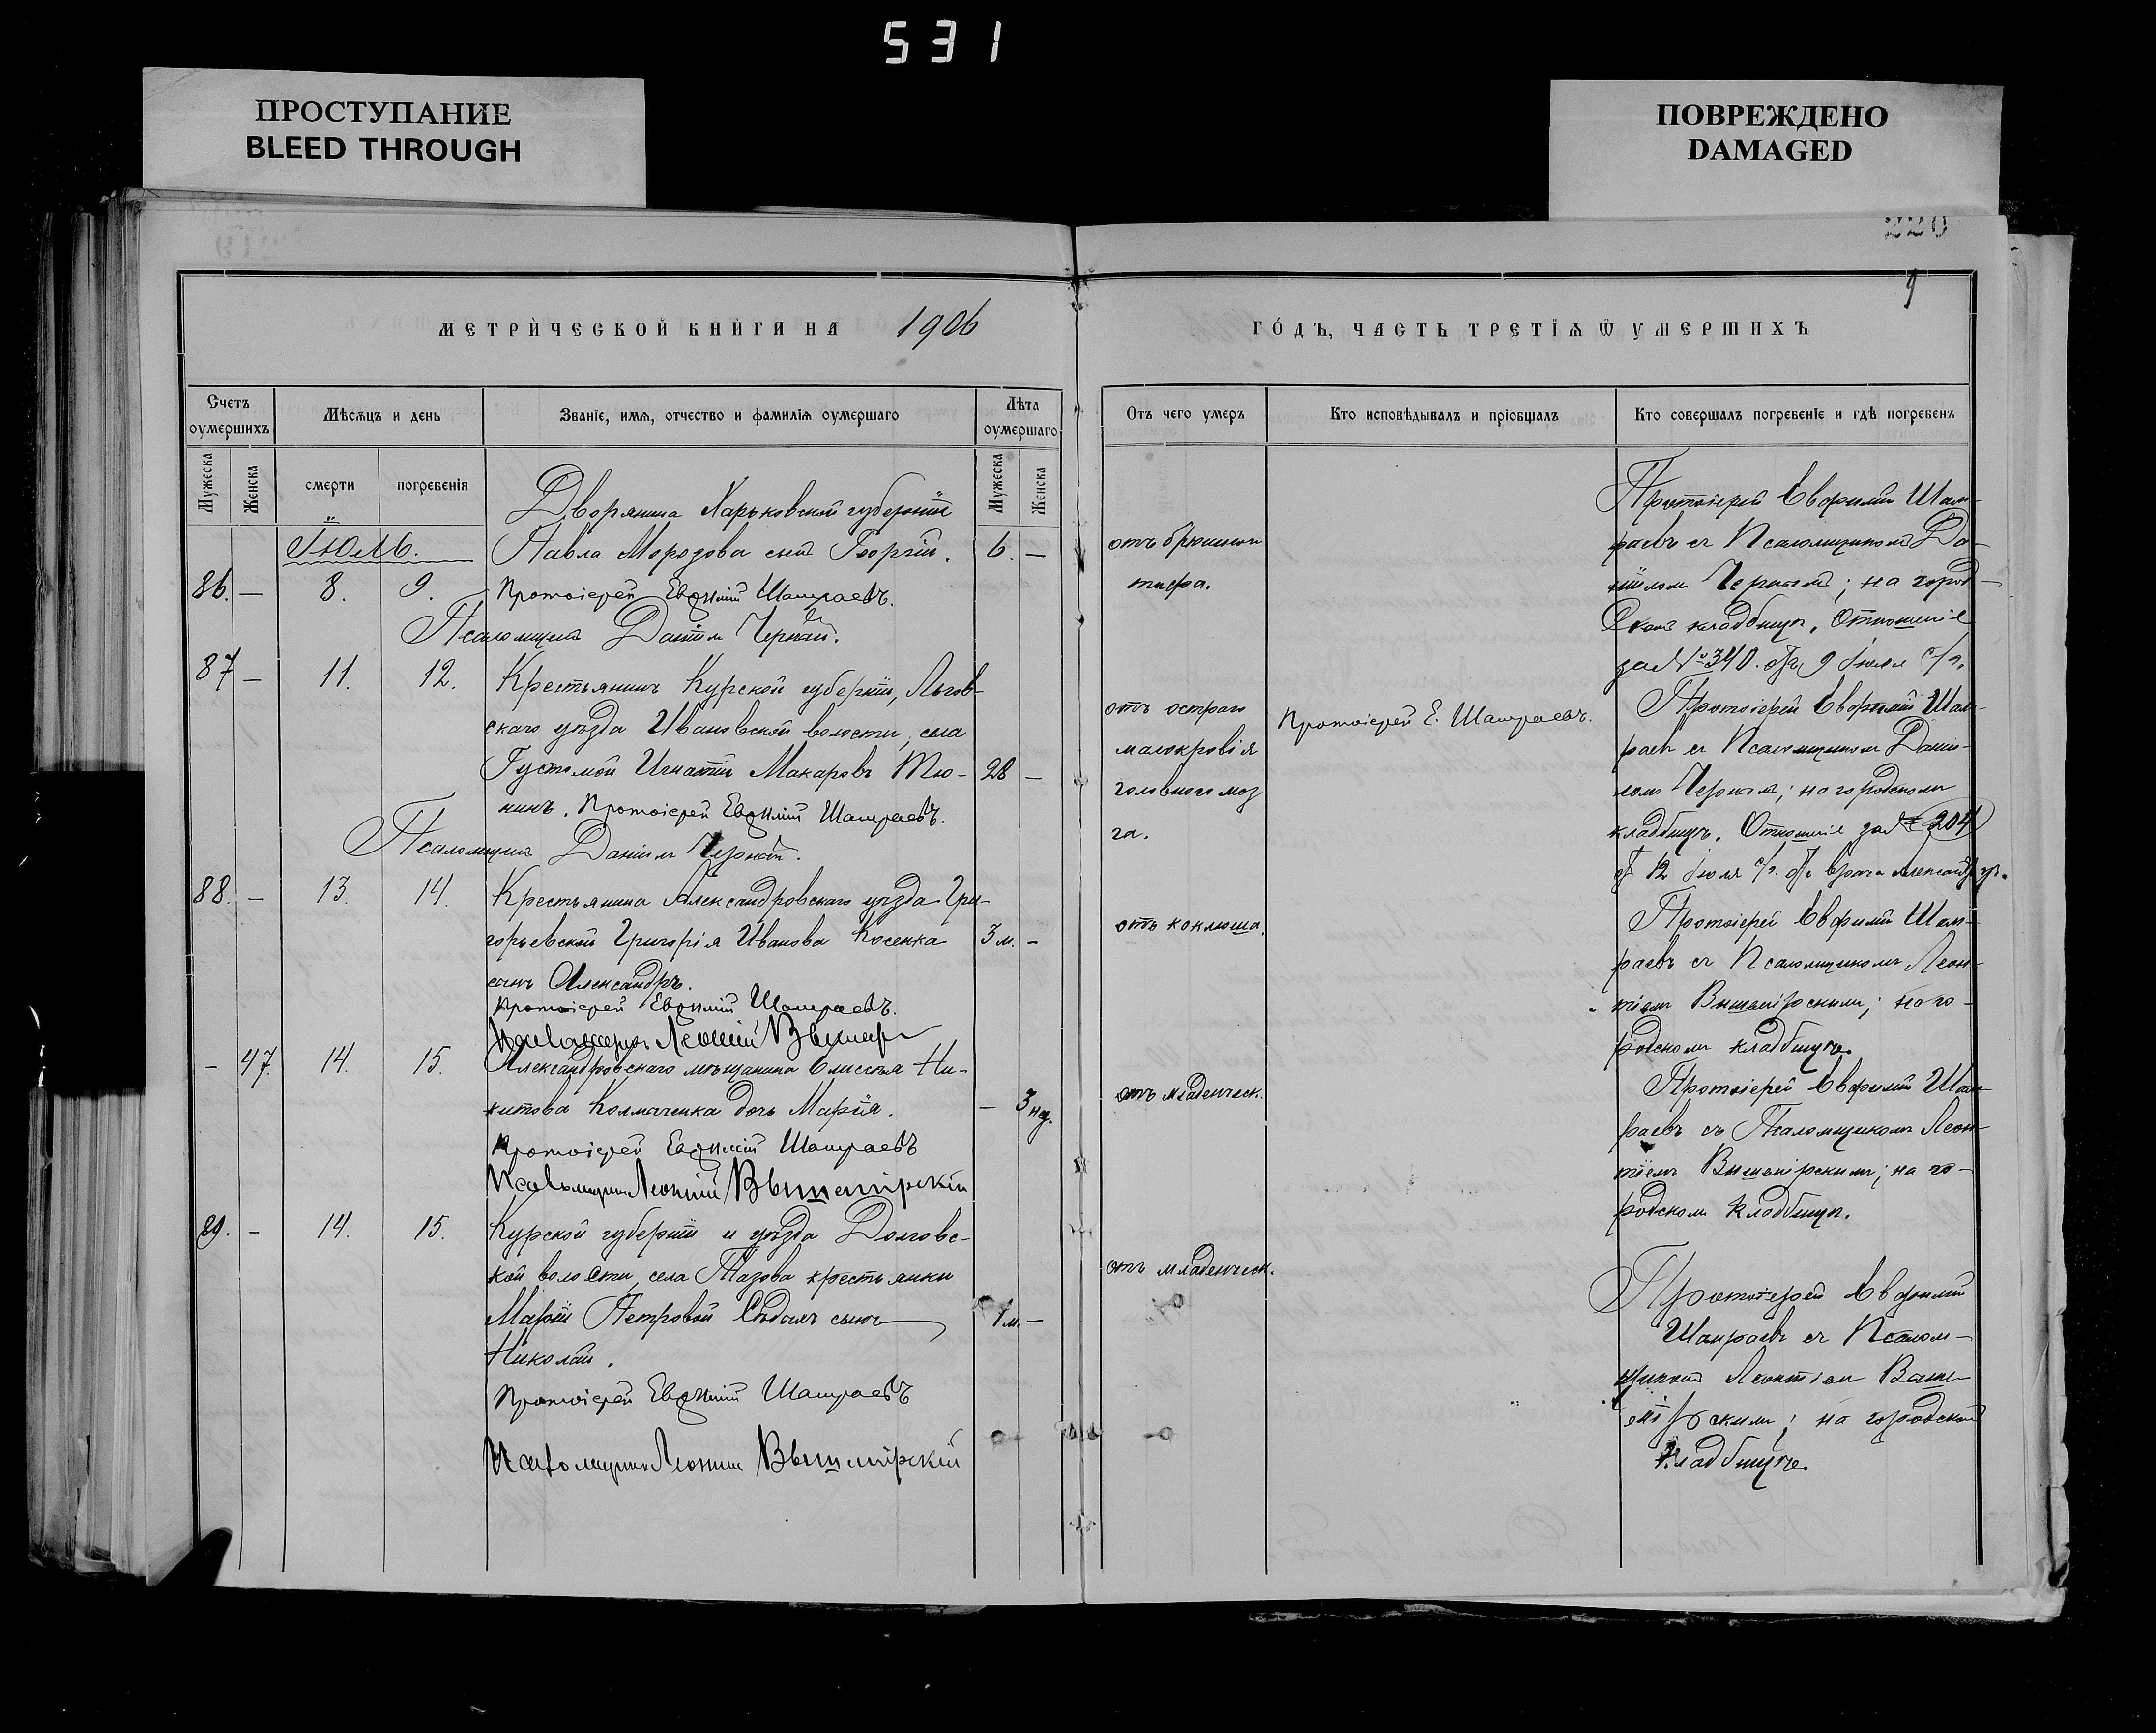 531
ПРОСТУПАНИЕ
BLEED THROUGH
ПОВРЕЖДЕНО
DAMAGED
220
9
МЕТРИ́ЧЕСКОЙ КНИ́ГИ НА 1906
ГО́ДЪ, ЧАСТЬ ТРЕТЇѦ Ѿ УМЕРШИХЪ
Счетъ оумершихъ
Мѣсѧцъ и день
Званіе, имѧ, отчество и фамилїѧ оумершаго
Лѣта оумершаго
Отъ чего умеръ
Кто исповѣдывалъ и прїобщалъ
Кто совершалъ погребенїе и гдѣ погребенъ
Мужеска
Женска
смерти
погребенїѧ
Мужеска
Женска
Іюль.
86. — 8. 9.
Дворянина Харьковской губерніи
Павла Морозова сынъ Георгій. 6. —
Протоіерей Евѳимій Шамраевъ.
Псаломщикъ Даніилъ Черный.
отъ брюшного
тифа.
Протоіерей Евфимій Шам-
раевъ съ Псаломщикомъ Да-
ніиломъ Чернымъ; на город-
скомъ кладбищѣ. Отношеніе
за № 340. отъ 9 Іюля с/г.
87 — 11. 12.
Крестьянинъ Курской губерніи, Льгов-
скаго уѣзда Ивановской волости, села
Густомой Игнатій Макаровъ Тю- 28 —
нинъ. Протоіерей Евѳимій Шамраевъ.
Псаломщикъ Даніилъ Черный.
отъ остраго
малокровія
головного моз
га.
Протоіерей Е. Шамраевъ.
Протоіерей Евфимій Шам-
раевъ съ Псаломщикомъ Даніи-
ломъ Чернымъ; на городскомъ
кладбищѣ. Отношеніе за № 204
отъ 12 Іюля с/г. отъ врача
88. — 13. 14.
Крестьянина Александровскаго уѣзда Гри-
горьевской Григорія Иванова Косенка 3 м. —
сынъ Александръ.
Протоіерей Евѳимій Шамраевъ.
Псаломщикъ Леонтій
отъ коклюша.
Протоіерей Евфимій Шам-
раевъ съ Псаломщикомъ Леон-
тіемъ Вышемірскимъ; на го-
родскомъ кладбищѣ.
— 47. 14. 15.
Александровскаго мѣщанина Елиссея Ни-
китова Колмаченка дочь Марія. — 3 нед.
Протоіерей Евѳимій Шамраевъ
Псаломщикъ Леонтій Вышемірскій
отъ младенческ.
Протоіерей Евфимій Шам-
раевъ съ Псаломщикомъ Леон-
тіемъ Вышемірскимъ; на го-
родскомъ кладбищѣ.
89. — 14. 15.
Курской губерніи и уѣзда Долговс-
кой волости, села Тазова крестьянки
Маріи Петровой сынъ 1 м. —
Николай.
Протоіерей Евѳимій Шамраевъ
Псаломщикъ Леонтій Вышемірскій
отъ младенческ.
Протоіерей Евфимій
Шамраевъ съ Псалом-
щикомъ Леонтіемъ Выше-
мірскимъ; на городскомъ
кладбищѣ.